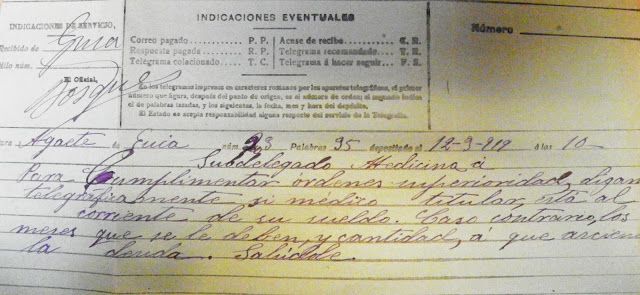 INDICACIONES DE SERVICIO,
Recibido de Guia
Hilo núm.
El Oficial,
Bosque
INDICACIONES EVENTUALES
Correo pagado .......... P. P.
Respuesta pagada .......... R. P.
Telegrama colacionado .......... T. C.
Acuse de recibo .......... C. R.
Telegrama recomendado .......... T. R.
Telegrama á hacer seguir .......... F. S.
En los telegramas impresos en caracteres romanos por los aparatos telegráficos, el primer
número que figura, después del punto de origen, es el número de orden; el segundo indica
el de palabras tasadas, y los siguientes, la fecha, mes y hora del depósito.
El Estado no acepta responsabilidad alguna respecto del servicio de la Telegrafía.
Número
Agaete de Guia núm. 23 Palabras 95 depositado el 12-9-919 á las 10
Subdelegado Medicina á
Para Cumplimentar órdenes superioridad, digan
telegraficamente si médico titular está al
corriente de su sueldo. Caso contrario, los
meses que se le deben, y cantidad, á que asciende
la deuda. Salúdole.